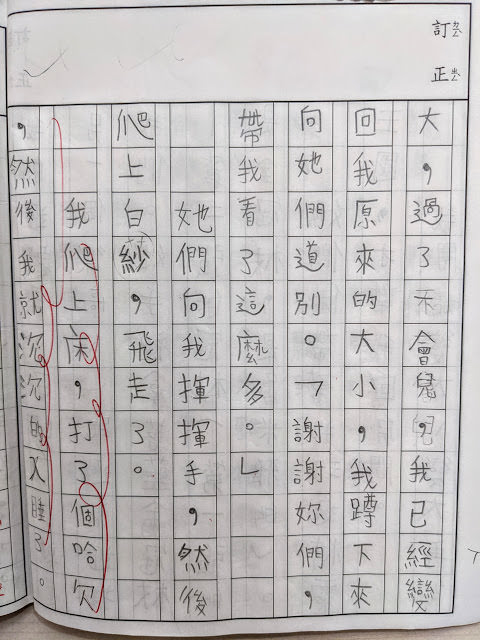 訂正
大,過了不會兒,我已經變
回我原來的大小,我蹲下來
向她們道別。「謝謝妳們,
帶我看了這麼多。」
她們向我揮揮手,然後
爬上白紗,飛走了。
我爬上床,打了個哈欠
,然後我就沉沉的入睡了。